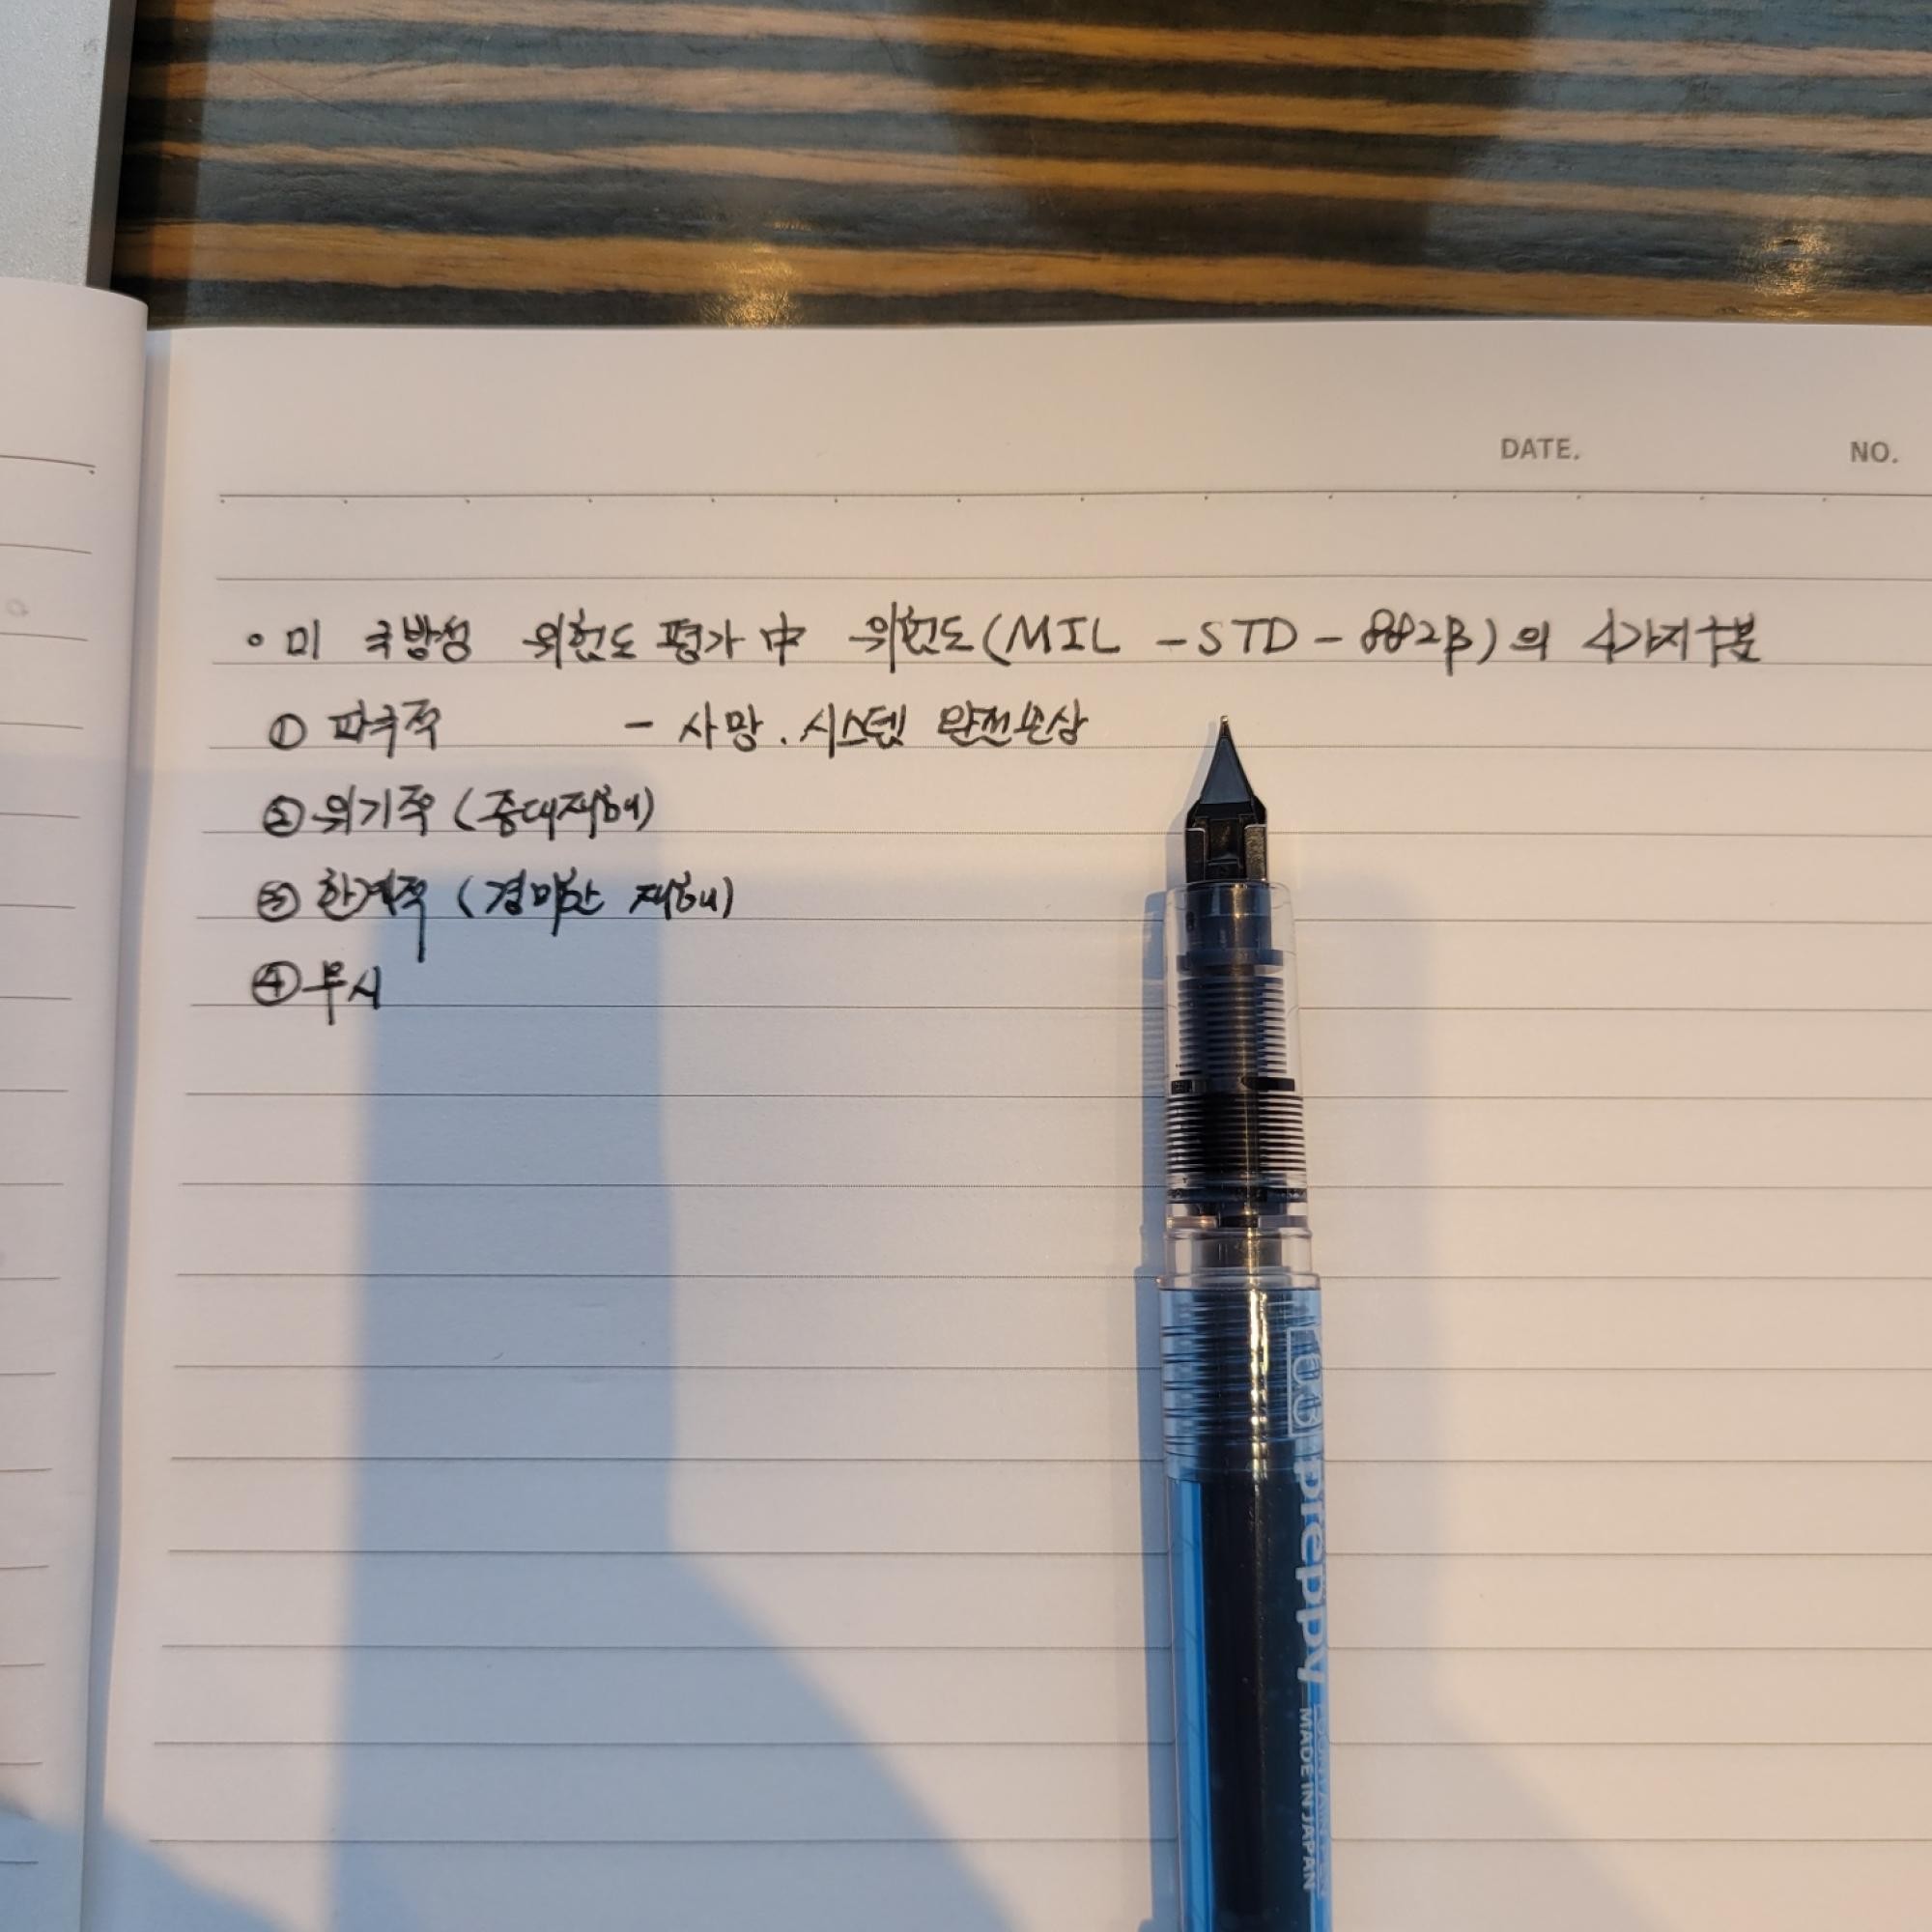 DATE. NO.
• 미 국방성 위험도 평가 中 위험도(MIL - STD - 882B)의 4가지 구분
① 파국적 - 사망. 시스템 완전손상
② 위기적 (중대재해)
③ 한계적 (경미한 재해)
④ 무시
03 preppy
MADE IN JAPAN